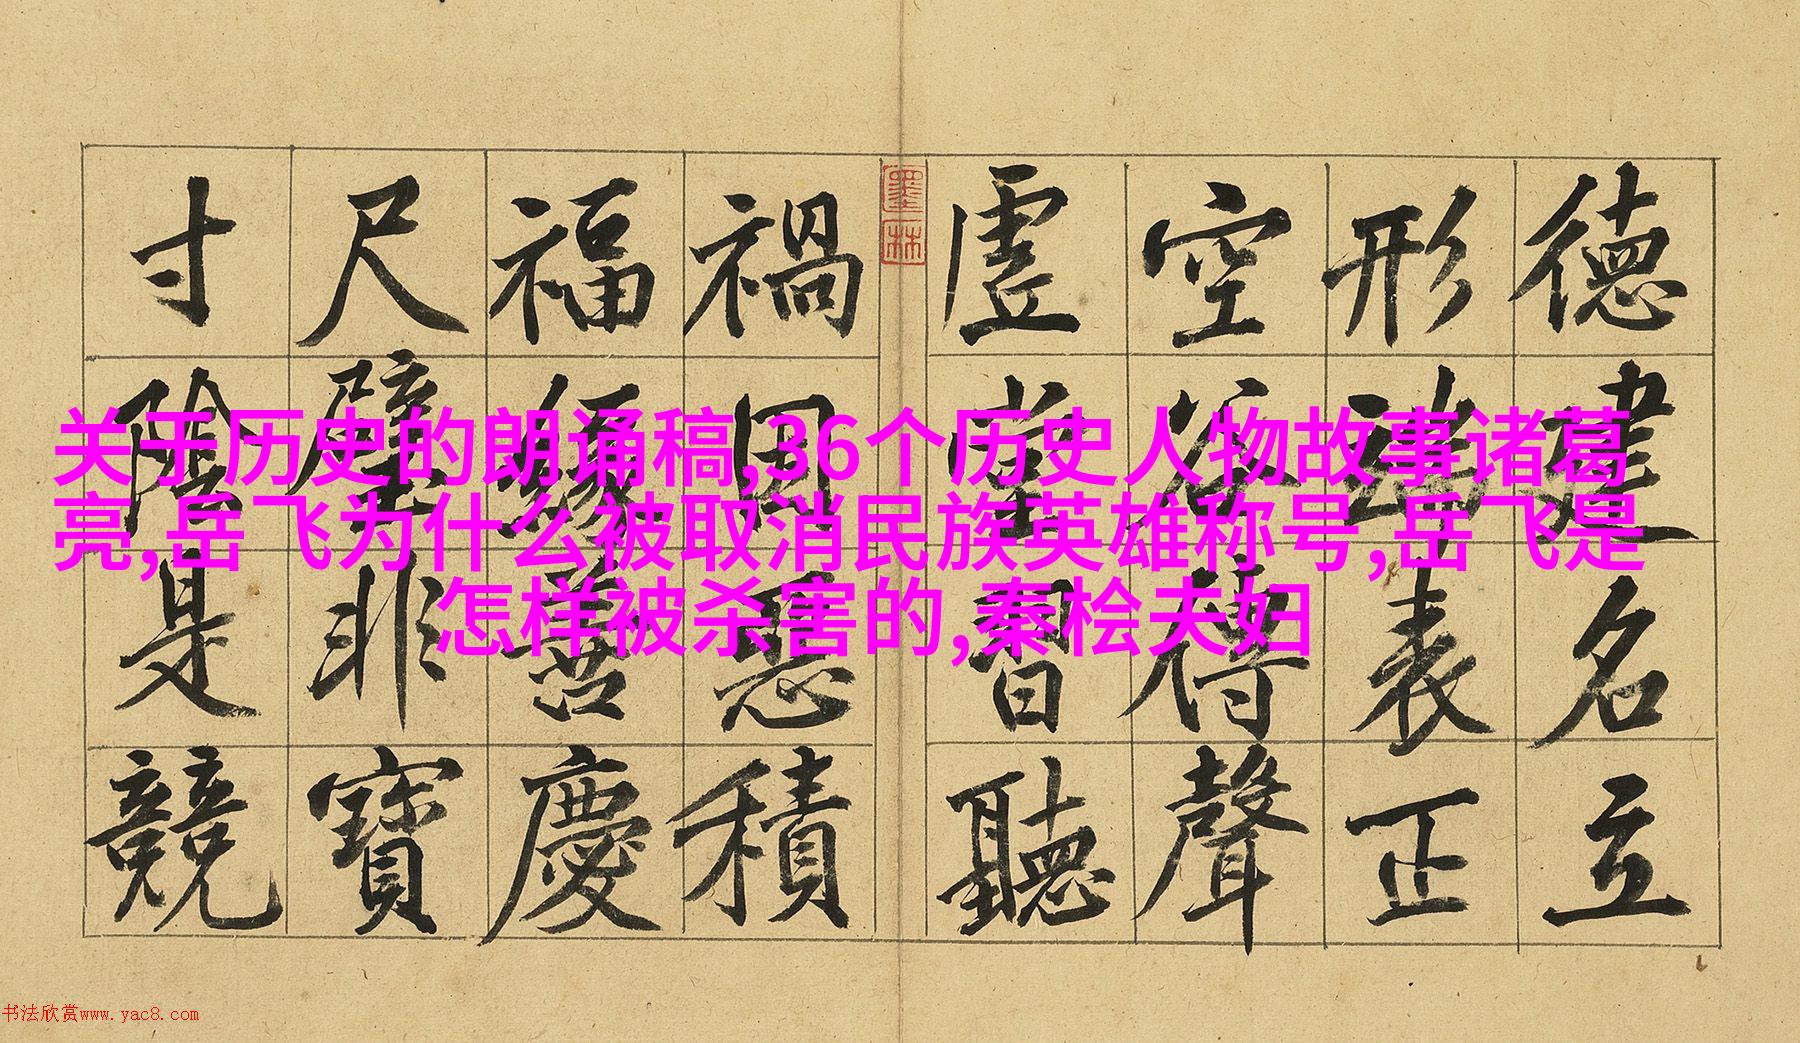 德建名立
形端表正
空谷傳聲
虛堂習聽
墨林
禍因惡積
福緣善慶
尺璧非寶
寸陰是競
关于历史的朗诵稿,36个历史人物故事诸葛
亮,岳飞为什么被取消民族英雄称号,岳飞是
怎样被杀害的,秦桧夫妇
书法欣赏www.yac8.com